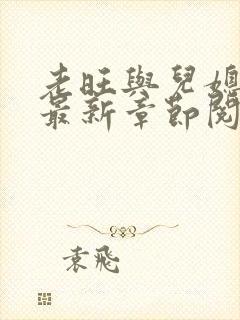 老旺與兒媳
最新章節閱
袁飛